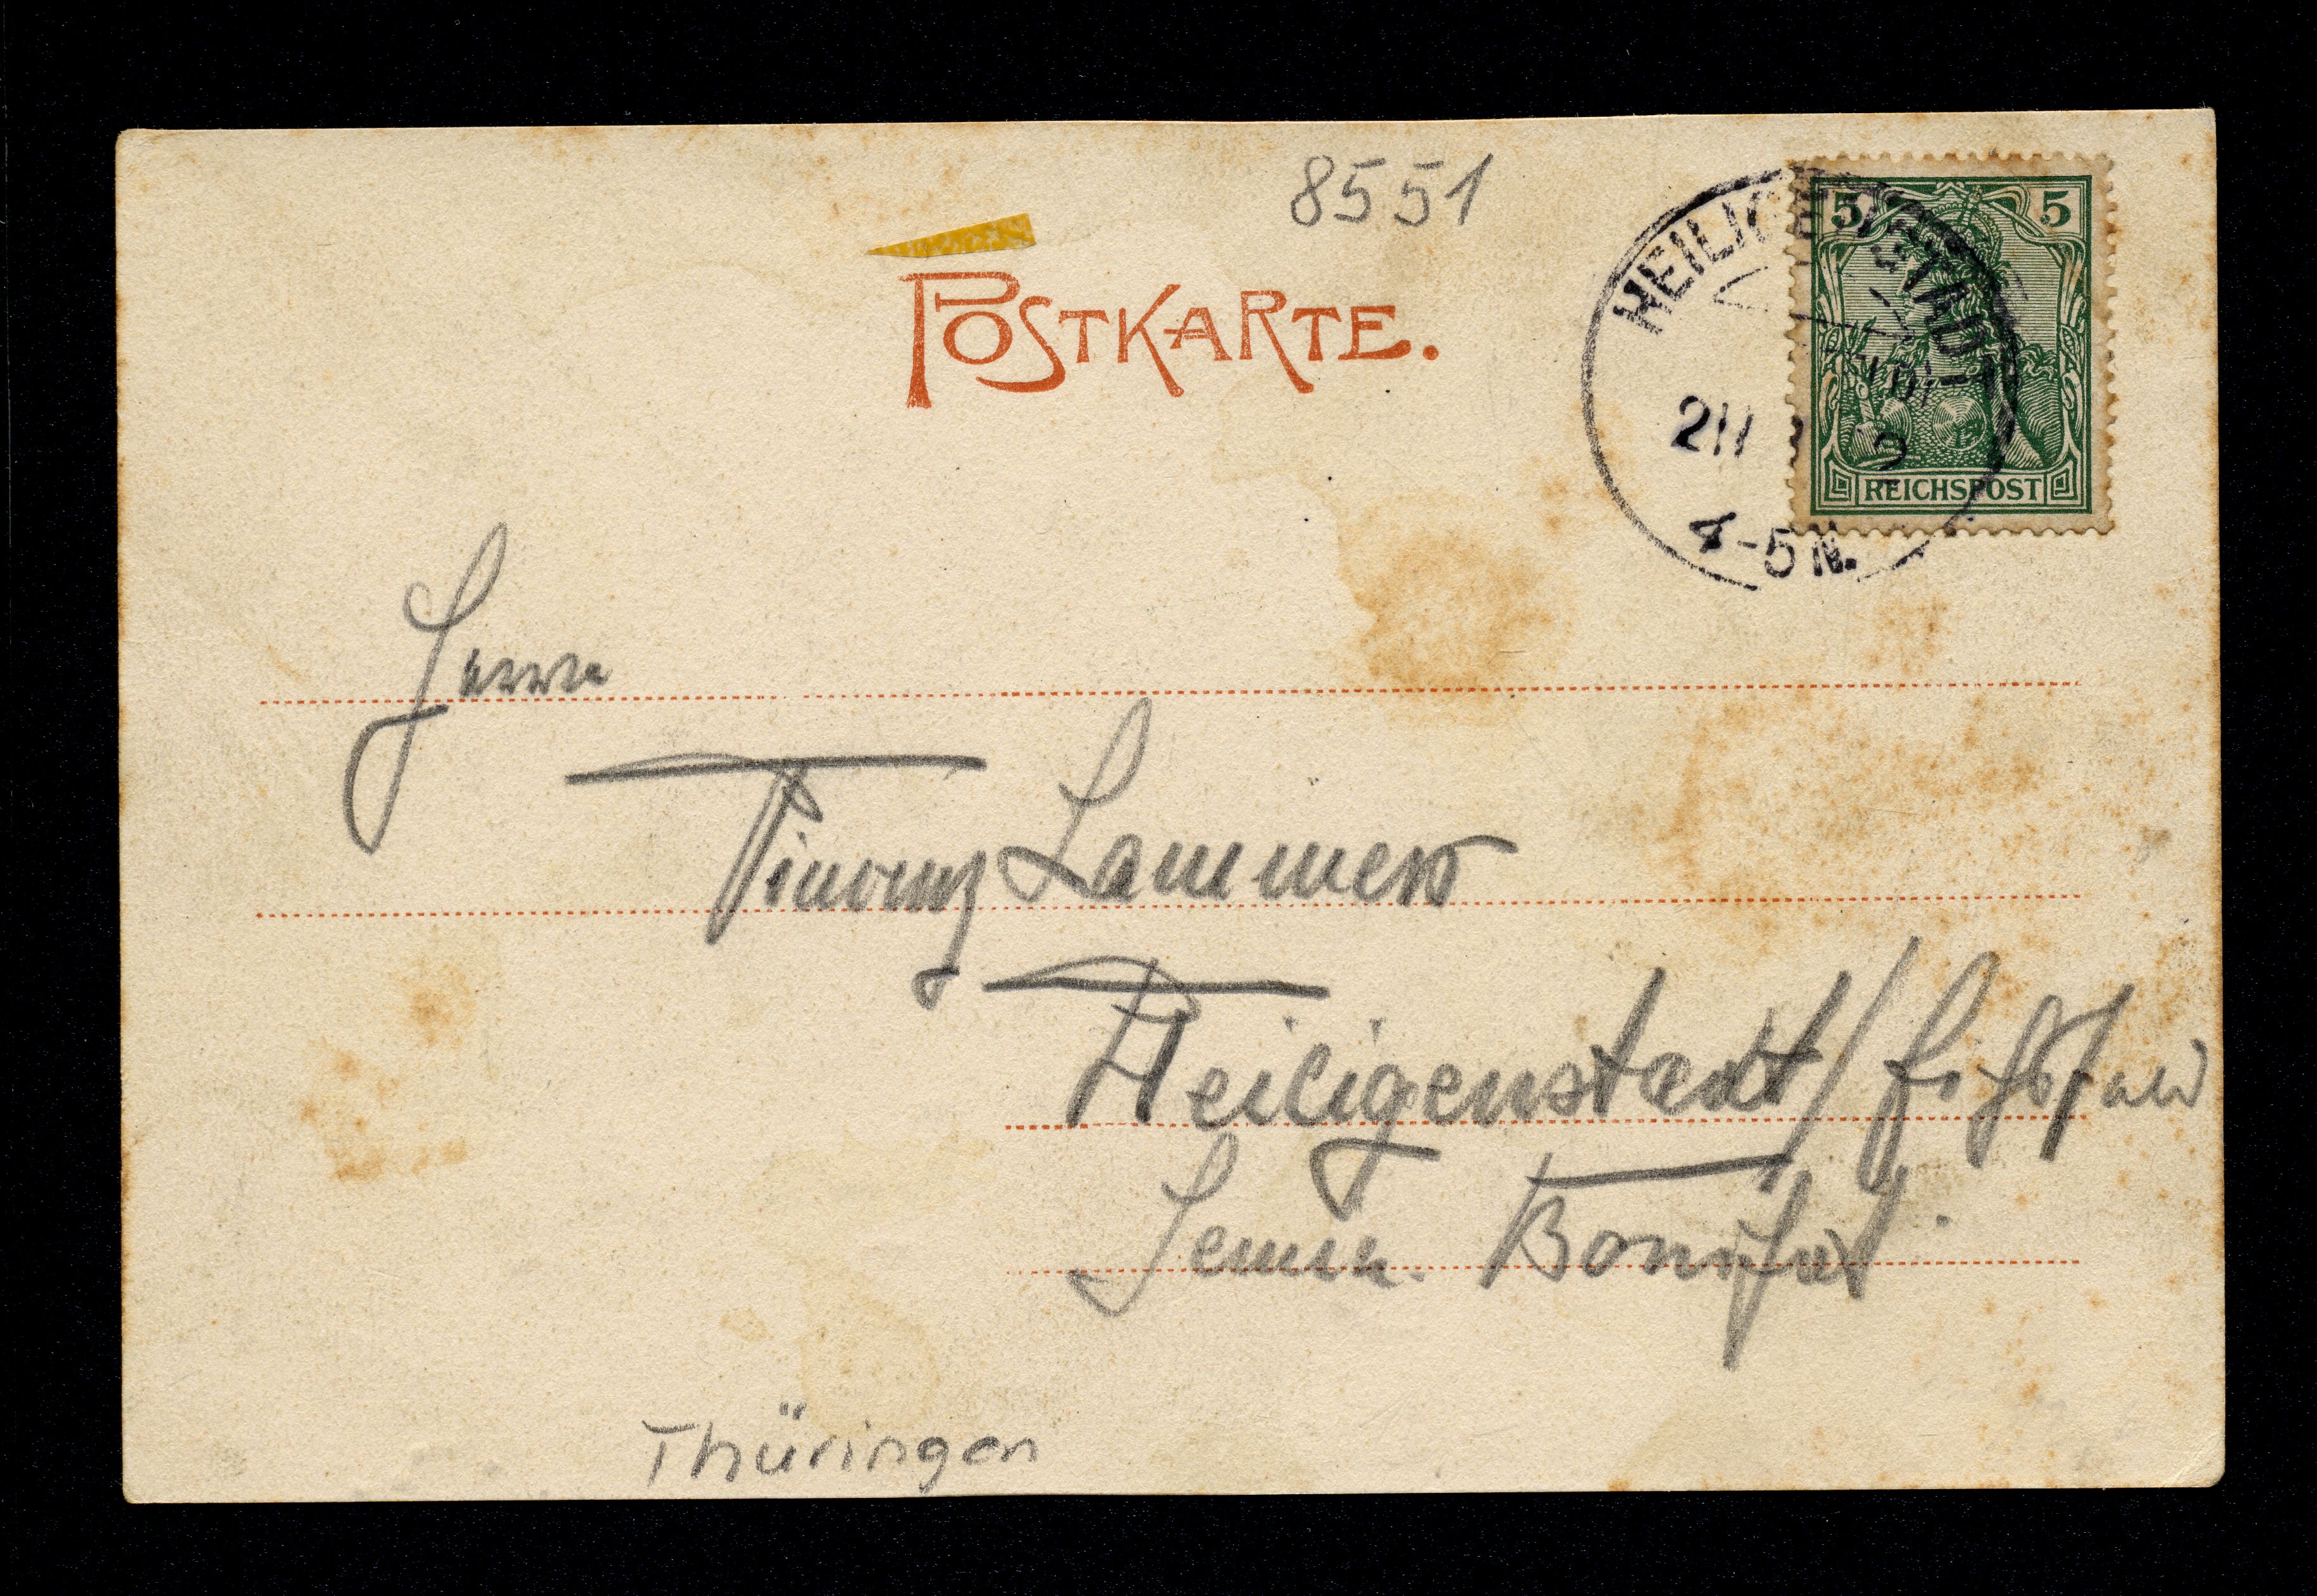 8551
POSTKARTE.
HEILIGENSTADT
4-5N.
5 5
REICHSPOST
Herrn
Vincenz Lammers
Heiligenstadt / Eichsfeld
Semin. Bonifat.
Thüringen